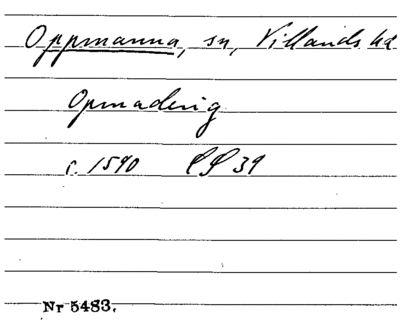 Oppmanna, sn, Villands hd
Opmaderig
c. 1590 PS 39
Nr 5483.